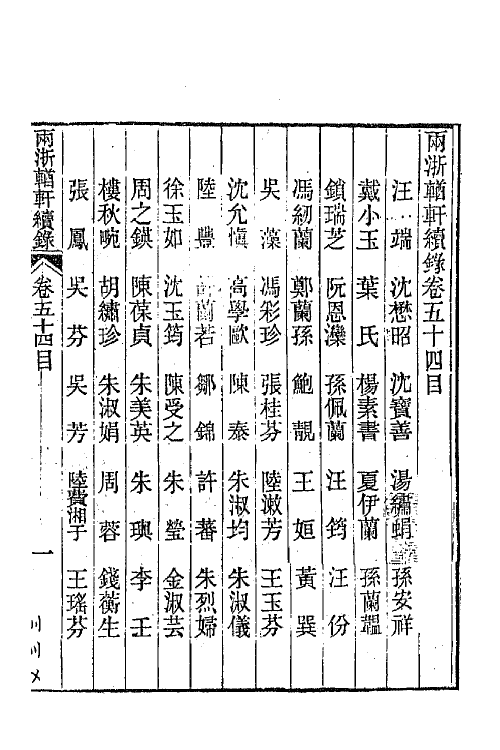 兩浙輶軒續錄卷五十四目
汪端 沈懋昭 沈寶善 湯繡蜎 孫安祥
戴小玉 葉氏 楊素書 夏伊蘭 孫蘭韞
鎖瑞芝 阮恩灤 孫佩蘭 汪筠 汪份
馮紉蘭 鄭蘭孫 鮑靚 王姮 黃巽
吳藻 馮彩珍 張桂芬 陸漱芳 王玉芬
沈允愼 高學歐 陳泰 朱淑均 朱淑儀
陸豐 蘭若 鄒錦 許蕃 朱烈婦
徐玉如 沈玉筠 陳受之 朱瑩 金淑芸
周之鍈 陳葆貞 朱美英 朱璵 李壬
樓秋畹 胡繡珍 朱淑娟 周蓉 錢蘅生
張鳳 吳芬 吳芳 陸費湘于 王瑤芬
兩浙輶軒續錄 卷五十四目 一